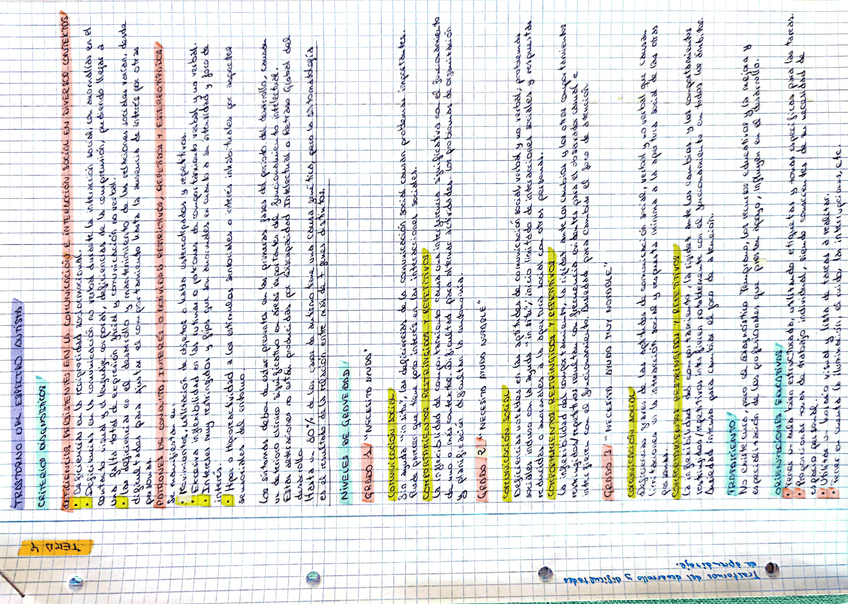 Trastornos del desarrollo y dificultades
de aprendizaje.
TEMA 4
TRASTORNO DEL ESPECTRO AUTISTA
CRITERIOS DIAGNÓSTICOS
DEFICIENCIAS PERSISTENTES EN LA COMUNICACIÓN E INTERACCIÓN SOCIAL EN DIVERSOS CONTEXTOS
Deficiencias en la reciprocidad socioemocional.
Deficiencias en la comunicación no verbal durante la interacción social, con anomalías en el
contacto visual y lenguaje corporal, deficiencias de la comprensión, pudiendo llegar a
una falta total de expresión facial y comunicación no verbal.
Las deficiencias en el desarrollo y mantenimiento de las relaciones sociales varían, desde
dificultades para ajustar el comportamiento hasta la ausencia de interés por otras
personas.
PATRONES DE CONDUCTA, INTERÉS O ACTIVIDAD RESTRICTIVOS, REPETITIVOS Y ESTEREOTIPADOS
Se manifiesta en:
Movimientos, utilización de objetos o habla estereotipados y repetitivos.
Excesiva inflexibilidad en las rutinas o patrones de comportamiento verbal y no verbal.
Intereses muy restringidos y fijos que son anormales en cuanto a su intensidad y foco de
interés.
Hiper o Hiporreactividad a los estímulos sensoriales o interés inhabituales por aspectos
sensoriales del entorno.
Los síntomas deben de estar presentes en las primeras fases del periodo del desarrollo, causan
un deterioro clínico significativo en áreas importantes del funcionamiento intelectual.
Estas alteraciones no están producidas por Discapacidad Intelectual o Retraso Global del
desarrollo.
Hasta un 80% de los casos de autismo tiene una causa genética, pero la sintomatología
es el resultado de la relación entre más de 7 genes distintos.
NIVELES DE GRAVEDAD
GRADO 1 "NECESITA AYUDA"
COMUNICACIÓN SOCIAL
Sin ayuda "in situ", las deficiencias de la comunicación social causan problemas importantes.
Puede parecer que tiene poco interés en las interacciones sociales.
COMPORTAMIENTOS RESTRINGIDOS Y REPETITIVOS
La inflexibilidad de comportamiento causa una interferencia significativa con el funcionamiento
de uno o más contextos. Dificultad para alternar actividades. Los problemas de organización
y planificación dificultan la autonomía.
GRADO 2 "NECESITA AYUDA NOTABLE"
COMUNICACIÓN SOCIAL
Deficiencias notables en las aptitudes de comunicación social, verbal y no verbal, problemas
sociales incluso con la ayuda "in situ"; inicio limitado de interacciones sociales y respuestas
reducidas o anormales a la apertura social con otras personas.
COMPORTAMIENTOS RESTRINGIDOS Y REPETITIVOS
La inflexibilidad del comportamiento, la rigidez ante los cambios y los otros comportamientos
restringidos/repetitivos resultan con frecuencia evidentes para el observador casual e
interfieren con el funcionamiento. Ansiedad para cambiar el foco de atención.
GRADO 3 "NECESITA AYUDA MUY NOTABLE"
COMUNICACIÓN SOCIAL
Deficiencias graves de las aptitudes de comunicación social verbal y no verbal que causa
limitaciones en la interacción social y respuesta mínima a la apertura social de las otras
personas.
COMPORTAMIENTOS RESTRINGIDOS Y REPETITIVOS
La inflexibilidad del comportamiento, la rigidez ante los cambios y los comportamientos
restringidos/repetitivos interfieren notablemente en el funcionamiento en todos los ámbitos.
Ansiedad intensa para cambiar el foco de atención.
TRATAMIENTO
No existe cura, pero el diagnóstico temprano, los recursos educativos y la mejora y
especialización de los profesionales que prestan apoyo, influyen en el desarrollo.
ORIENTACIONES EDUCATIVAS
Tener un aula bien estructurada, utilizando etiquetas y zonas específicas para las tareas.
Proporcionar zonas de trabajo individual, siendo conscientes de su necesidad de
espacio personal.
Utilizar un horario visual y lista de tareas a realizar.
Tener en cuenta la iluminación, el ruido, las interrupciones, etc.